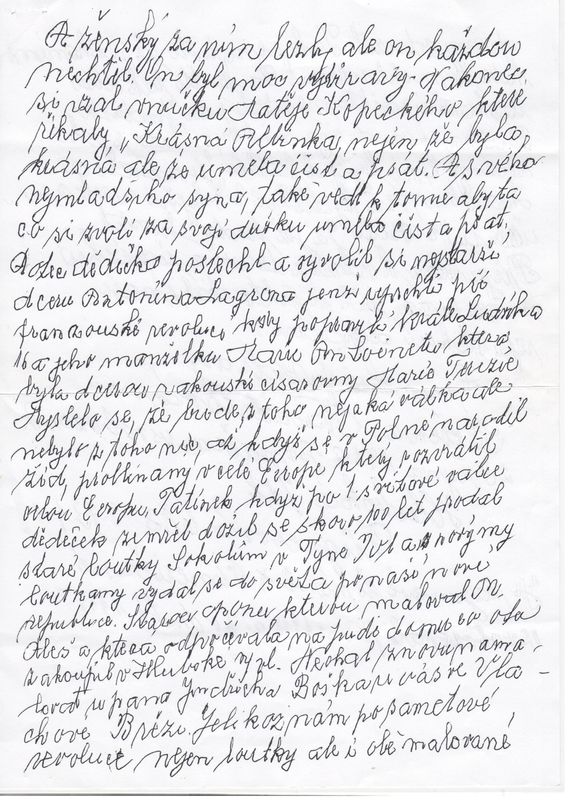 A ženský za ním lezly ale on každou
nechtěl. On byl moc vybíravý. Nakonec
si vzal vnučku Matěje Kopeckého které
říkaly, "Krásná Albínka, nejen že byla
krásná ale že uměla číst a psát. A svého
nejmladšího syna, také vedl k tomu aby ta
co si zvolí za svoji družku uměla číst a psát,
A dědečka poslechl a vyvolil si nejstarší
dceru Antonína Lagrona jenž uprchl při
francouské revoluci, kdy popravili krále Ludvíka
16 a jeho manželku Marii Antoinetu která
byla dcerou rakouské císařovny Marie Terezie
Myslelo se, že bude z toho nějaká válka ale
nebylo z toho nic, až když se v Polné narodil
žid, v celé Evropě který rozvrátil
celou Evropu. Tatínek, když po 1 světové válce
dědeček zemřel dožil se skoro 100 let prodal
staré loutky Sokolům v Týně Vlt a s novými
loutkamy vydal se do světa po naší nové
republice. oponu kterou maloval M.
Aleš a která odpočívala na půdě domu co
zakoupil v Hluboké n/vl. Nechal znovu nama-
lovat u pana Jindřicha Boška u vás ve Vla-
chově Březí. Jelikož nám po sametové
revoluci nejen loutky ale i obě malované